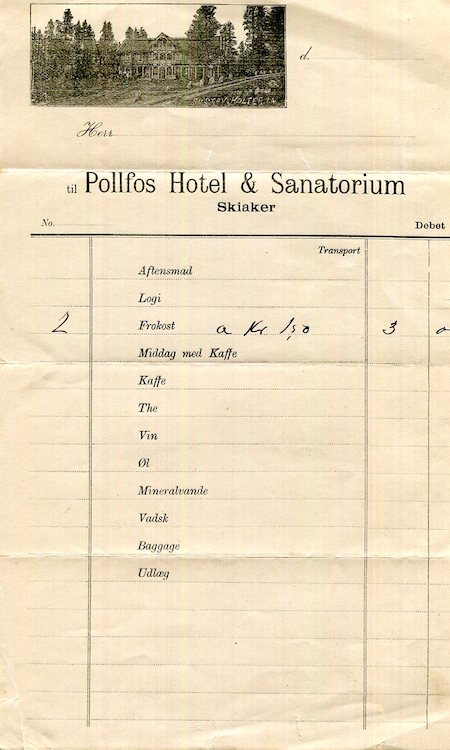 d.
Herr
til Pollfos Hotel & Sanatorium
Skiaker
No. Debet
Transport
Aftensmad
Logi
2 Frokost a Kr 1,50 3 0
Middag med Kaffe
Kaffe
The
Vin
Øl
Mineralvande
Vadsk
Baggage
Udlæg